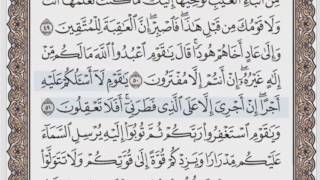 مِنْ أَنۢبَآءِ ٱلْغَيْبِ نُوحِيهَآ إِلَيْكَ مَا كُنتَ تَعْلَمُهَآ أَنتَ
وَلَا قَوْمُكَ مِن قَبْلِ هَٰذَا فَٱصْبِرْ إِنَّ ٱلْعَٰقِبَةَ لِلْمُتَّقِينَ ٤٩
وَإِلَىٰ عَادٍ أَخَاهُمْ هُودًا قَالَ يَٰقَوْمِ ٱعْبُدُوا۟ ٱللَّهَ مَا لَكُم مِّنْ
إِلَٰهٍ غَيْرُهُۥٓ إِنْ أَنتُمْ إِلَّا مُفْتَرُونَ ٥٠ يَٰقَوْمِ لَآ أَسْـَٔلُكُمْ عَلَيْهِ
أَجْرًا إِنْ أَجْرِىَ إِلَّا عَلَى ٱلَّذِى فَطَرَنِىٓ أَفَلَا تَعْقِلُونَ ٥١
وَيَٰقَوْمِ ٱسْتَغْفِرُوا۟ رَبَّكُمْ ثُمَّ تُوبُوٓا۟ إِلَيْهِ يُرْسِلِ ٱلسَّمَآءَ
عَلَيْكُم مِّدْرَارًا وَيَزِدْكُمْ قُوَّةً إِلَىٰ قُوَّتِكُمْ وَلَا تَتَوَلَّوْا۟